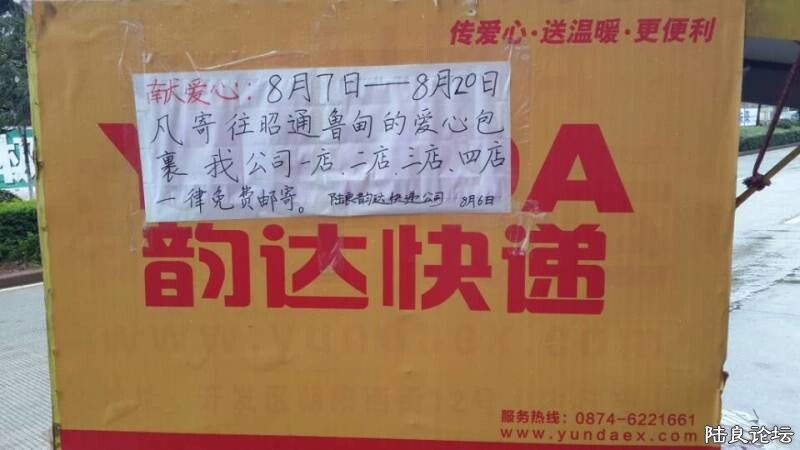 传爱心·送温暖·更便利
献爱心：8月7日——8月20日
凡寄往昭通鲁甸的爱心包
裹我公司一店、二店、三店、四店
一律免费邮寄。 陆良韵达快递公司 8月6日
Y DA
韵达快递
服务热线：0874-6221661
www.yundaex.com
陆良论坛